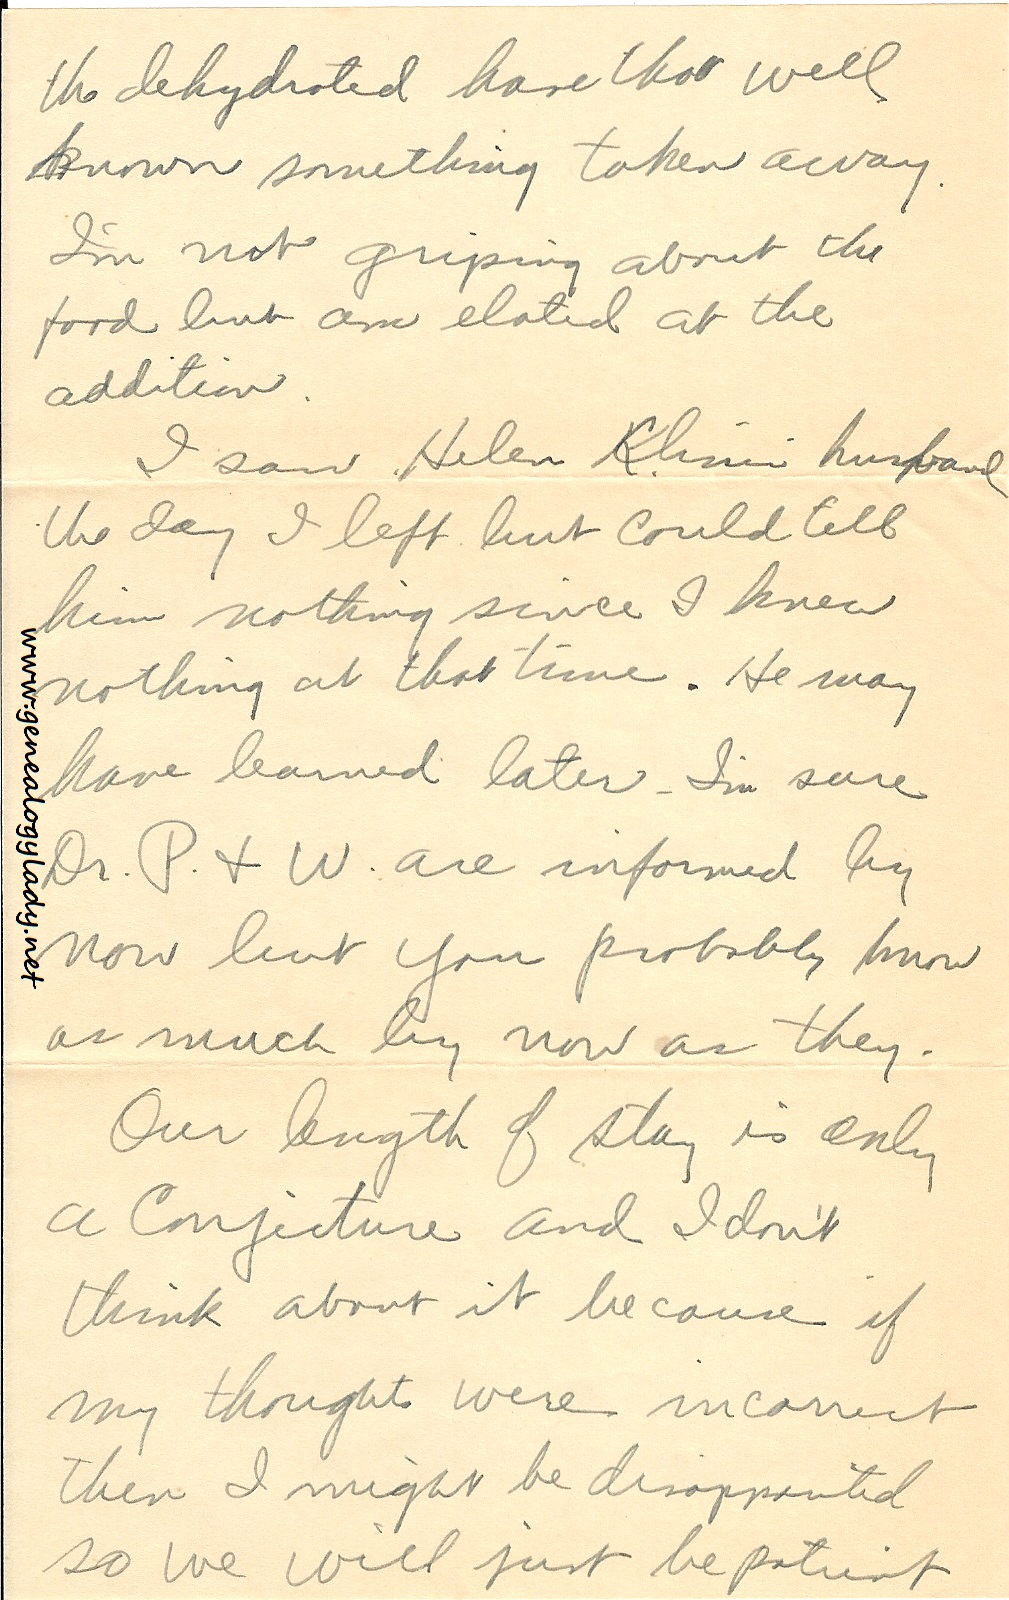 the dehydrated have that well
known something taken away.
I'm not griping about the
food but am elated at the
addition.
I saw Helen husband
the day I left but could tell
him nothing since I knew
nothing at that time. He may
have learned later - I'm sure
Dr. P. + W. are informed by
now but you probably know
as much by now as they.
Our length of stay is only
a conjecture and I don't
think about it because if
my thoughts were incorrect
then I might be disappointed
so we will just be patient
www.genealogylady.net